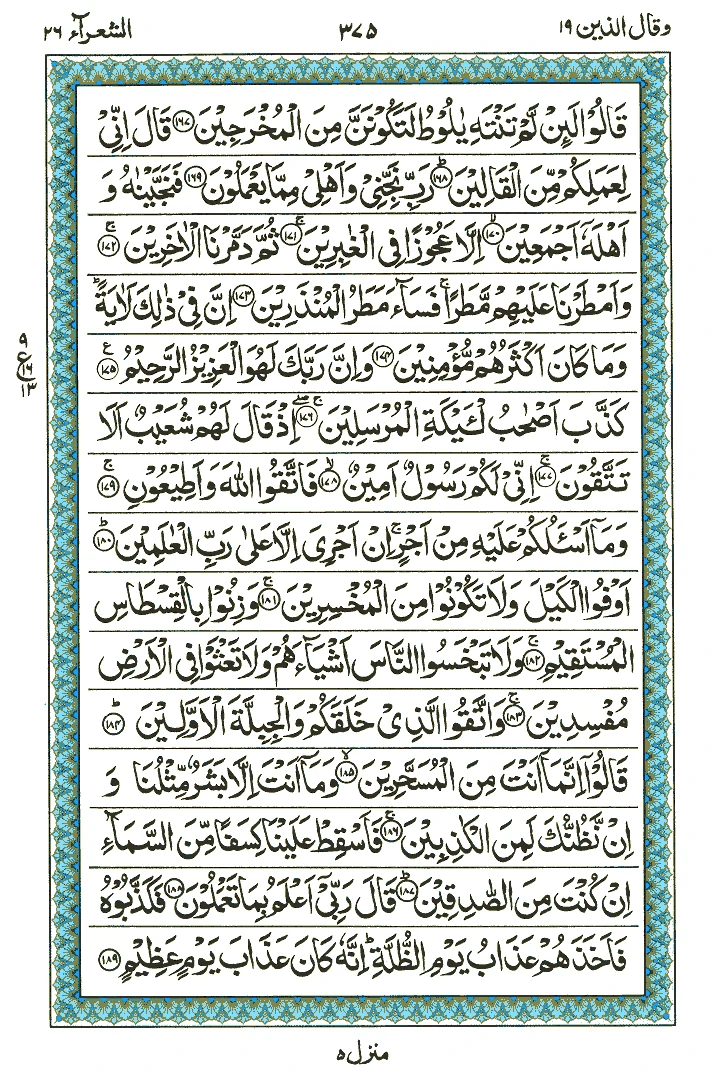 وقال الذين ١٩
٣٧٥
الشعرآء ٢٦
قَالُوْا لَئِنْ لَّمْ تَنْتَهِ يٰلُوْطُ لَتَكُوْنَنَّ مِنَ الْمُخْرَجِيْنَ ١٦٧ قَالَ اِنِّيْ
لِعَمَلِكُمْ مِّنَ الْقَالِيْنَ ؕ ١٦٨ رَبِّ نَجِّنِيْ وَاَهْلِيْ مِمَّا يَعْمَلُوْنَ ١٦٩ فَنَجَّيْنٰهُ وَ
اَهْلَهٗۤ اَجْمَعِيْنَ ۙ ١٧٠ اِلَّا عَجُوْزًا فِي الْغٰبِرِيْنَ ۚ ١٧١ ثُمَّ دَمَّرْنَا الْاٰخَرِيْنَ ۚ ١٧٢
وَاَمْطَرْنَا عَلَيْهِمْ مَّطَرًا ۚ فَسَآءَ مَطَرُ الْمُنْذَرِيْنَ ١٧٣ اِنَّ فِيْ ذٰلِكَ لَاٰيَةً ؕ
وَمَا كَانَ اَكْثَرُهُمْ مُّؤْمِنِيْنَ ١٧٤ وَاِنَّ رَبَّكَ لَهُوَ الْعَزِيْزُ الرَّحِيْمُ ع ١٧٥
٩
ع
١٦
١٣
كَذَّبَ اَصْحٰبُ لْئَيْكَةِ الْمُرْسَلِيْنَ ۖۚ ١٧٦ اِذْ قَالَ لَهُمْ شُعَيْبٌ اَلَا
تَتَّقُوْنَ ۚ ١٧٧ اِنِّيْ لَكُمْ رَسُوْلٌ اَمِيْنٌ ۙ ١٧٨ فَاتَّقُوا اللّٰهَ وَاَطِيْعُوْنِ ۚ ١٧٩
وَمَاۤ اَسْئَلُكُمْ عَلَيْهِ مِنْ اَجْرٍ ۚ اِنْ اَجْرِيَ اِلَّا عَلٰى رَبِّ الْعٰلَمِيْنَ ؕ ١٨٠
اَوْفُوا الْكَيْلَ وَلَا تَكُوْنُوْا مِنَ الْمُخْسِرِيْنَ ۚ ١٨١ وَزِنُوْا بِالْقِسْطَاسِ
الْمُسْتَقِيْمِ ۚ ١٨٢ وَلَا تَبْخَسُوا النَّاسَ اَشْيَآءَهُمْ وَلَا تَعْثَوْا فِي الْاَرْضِ
مُفْسِدِيْنَ ۚ ١٨٣ وَاتَّقُوا الَّذِيْ خَلَقَكُمْ وَالْجِبِلَّةَ الْاَوَّلِيْنَ ؕ ١٨٤
قَالُوْۤا اِنَّمَاۤ اَنْتَ مِنَ الْمُسَحَّرِيْنَ ۙ ١٨٥ وَمَاۤ اَنْتَ اِلَّا بَشَرٌ مِّثْلُنَا وَ
اِنْ نَّظُنُّكَ لَمِنَ الْكٰذِبِيْنَ ۚ ١٨٦ فَاَسْقِطْ عَلَيْنَا كِسَفًا مِّنَ السَّمَآءِ
اِنْ كُنْتَ مِنَ الصّٰدِقِيْنَ ؕ ١٨٧ قَالَ رَبِّيْۤ اَعْلَمُ بِمَا تَعْمَلُوْنَ ١٨٨ فَكَذَّبُوْهُ
فَاَخَذَهُمْ عَذَابُ يَوْمِ الظُّلَّةِ ؕ اِنَّهٗ كَانَ عَذَابَ يَوْمٍ عَظِيْمٍ ١٨٩
منزل ٥